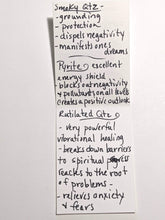 Smoky Qtz -
- grounding
- protection
- dispels negativity
- manifests ones
dreams
Pyrite - excellent
energy shield
- blocks out negativity
& pollutants on all levels
creates a positive outlook
Rutilated Qtz -
- very powerful
vibrational healing
- breaks down barriers
to spiritual progress
reaches to the root
of problems -
- relieves anxiety
& fears